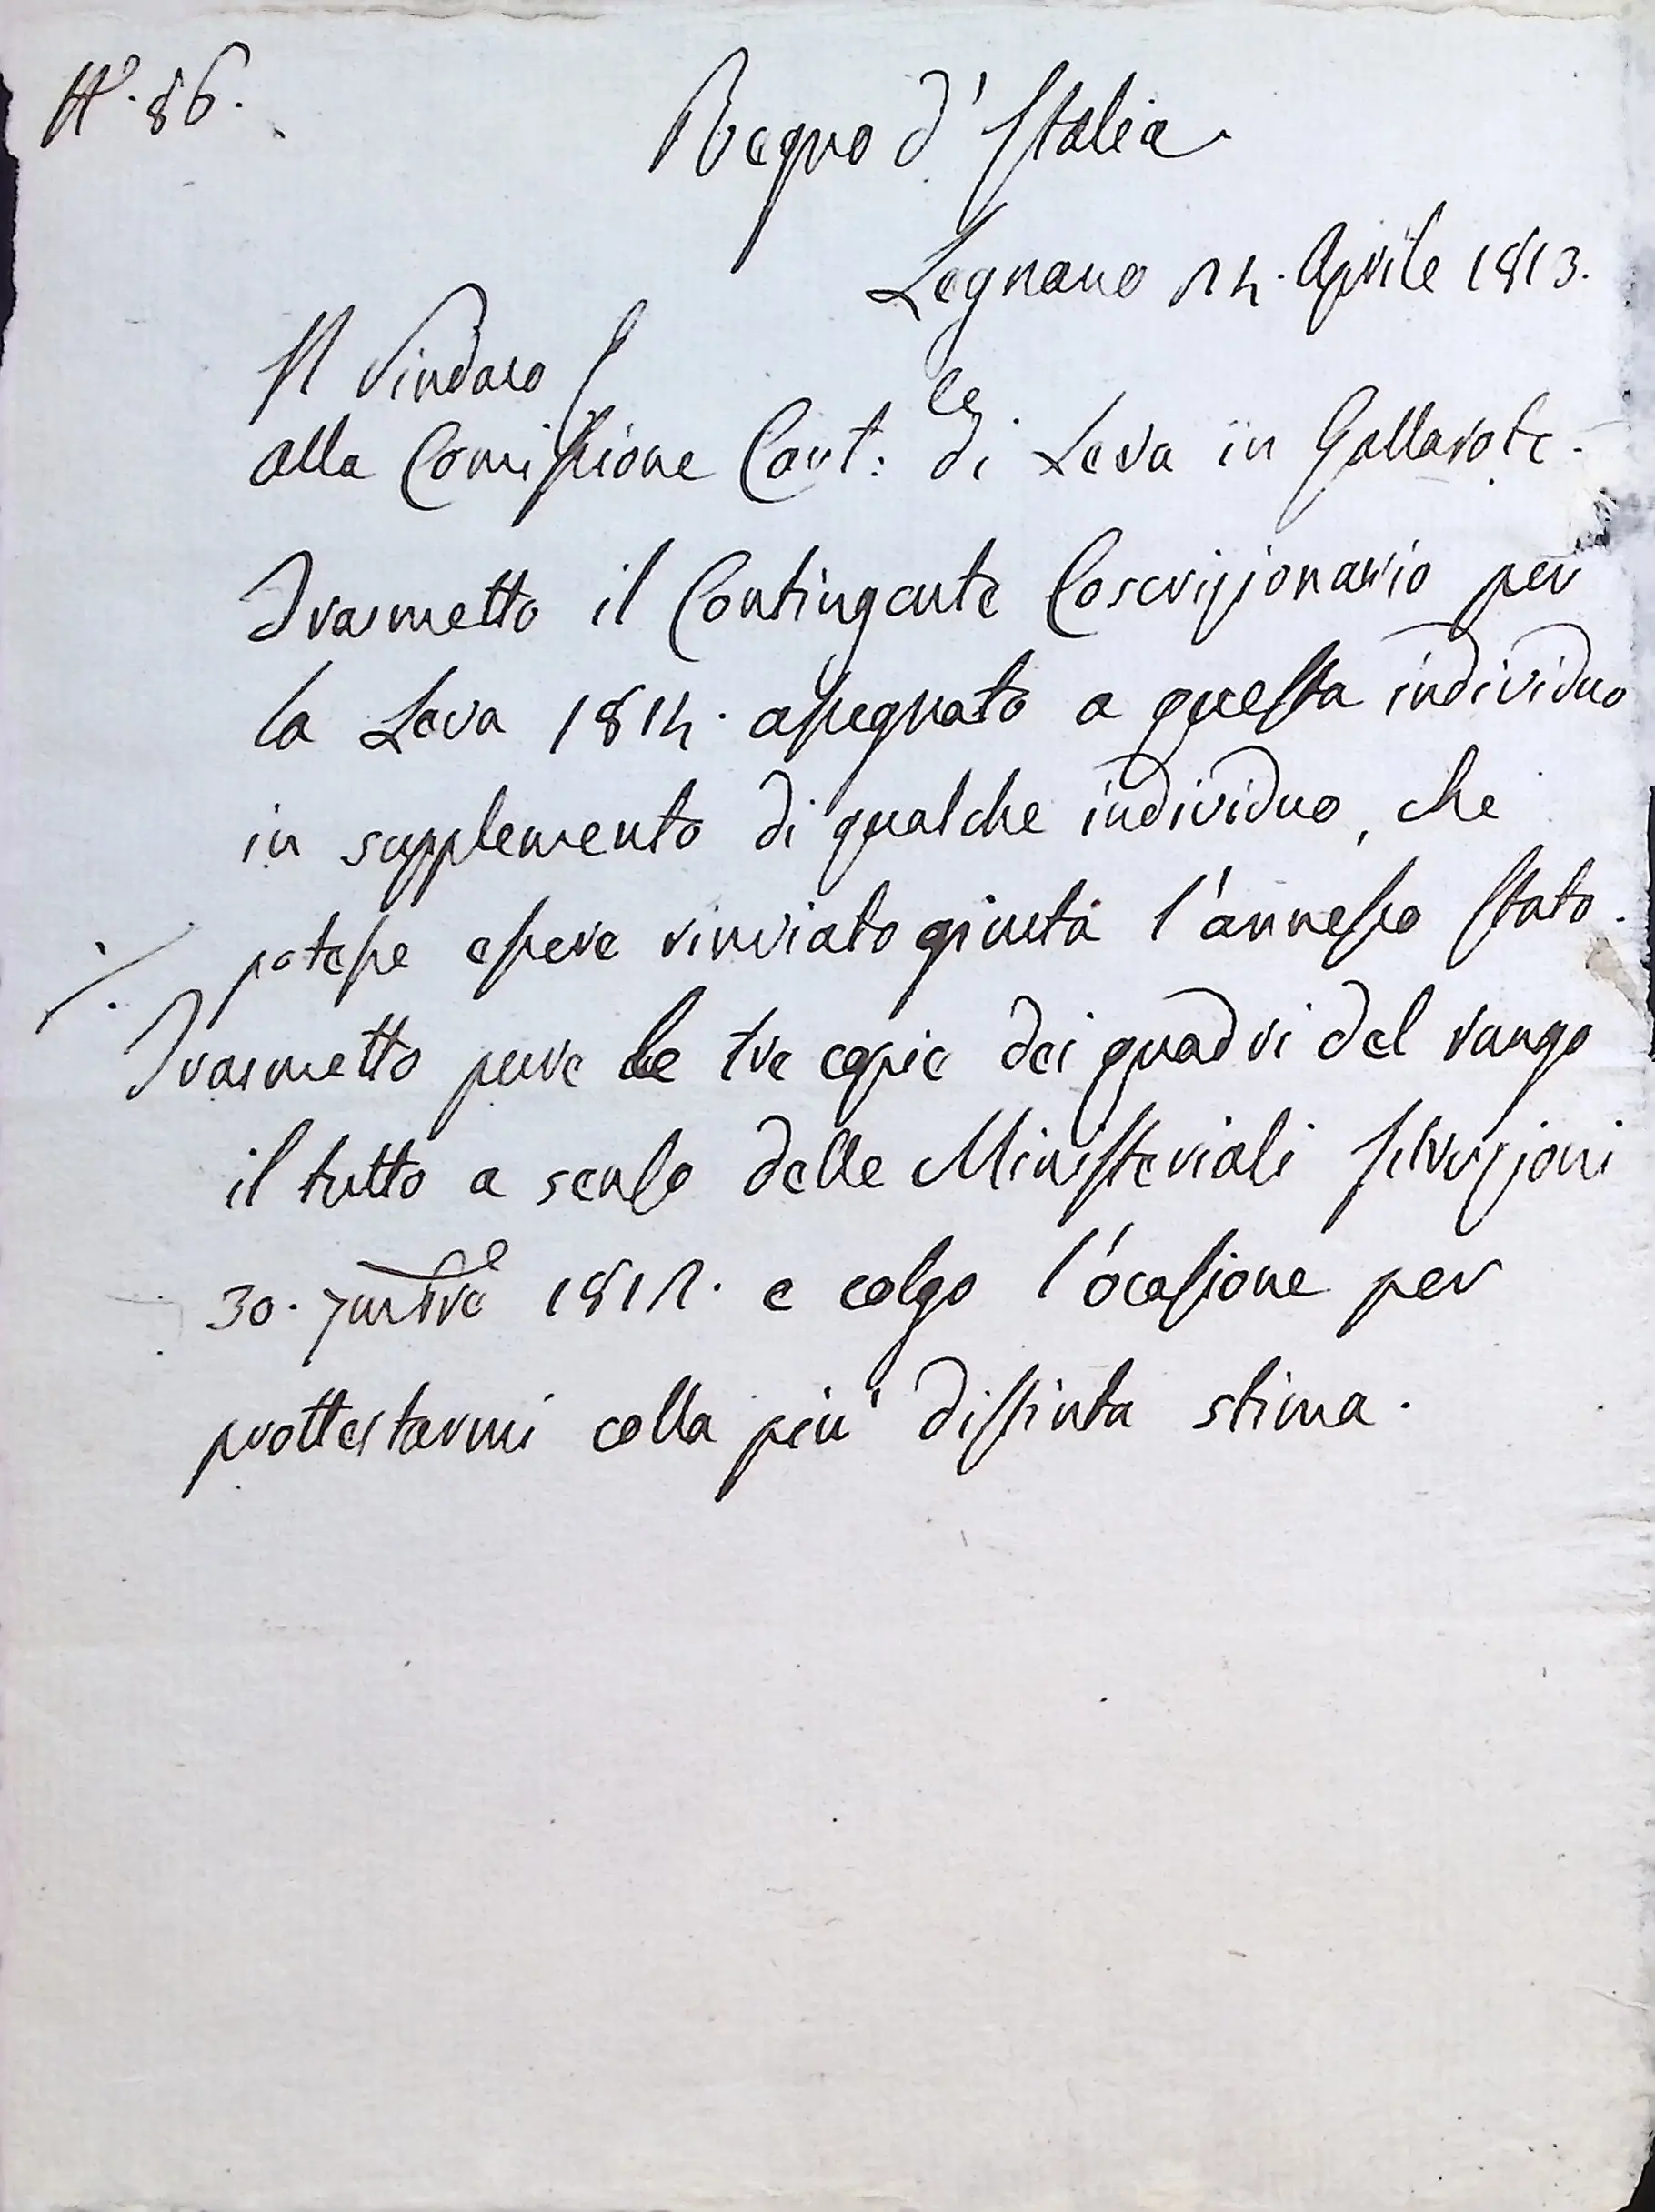 N.o 86.
Regno d'Italia
Legnano 24. Aprile 1813.
Il Sindaco
alla Comissione Cant:le di Leva in Gallarate.
Trasmetto il Contingente Coscrizionario per
la Leva 1814. assegnato a questa individuo
in supplemento di qualche individuo, che
potesse essere rinviato giusta l'annesso stato.
Trasmetto pure le tre copie dei quadri del rango
il tutto a senso delle Ministeriali Istruzioni
30. 7mbre 1812. e colgo l'ocasione per
prottestarmi colla più distinta stima.